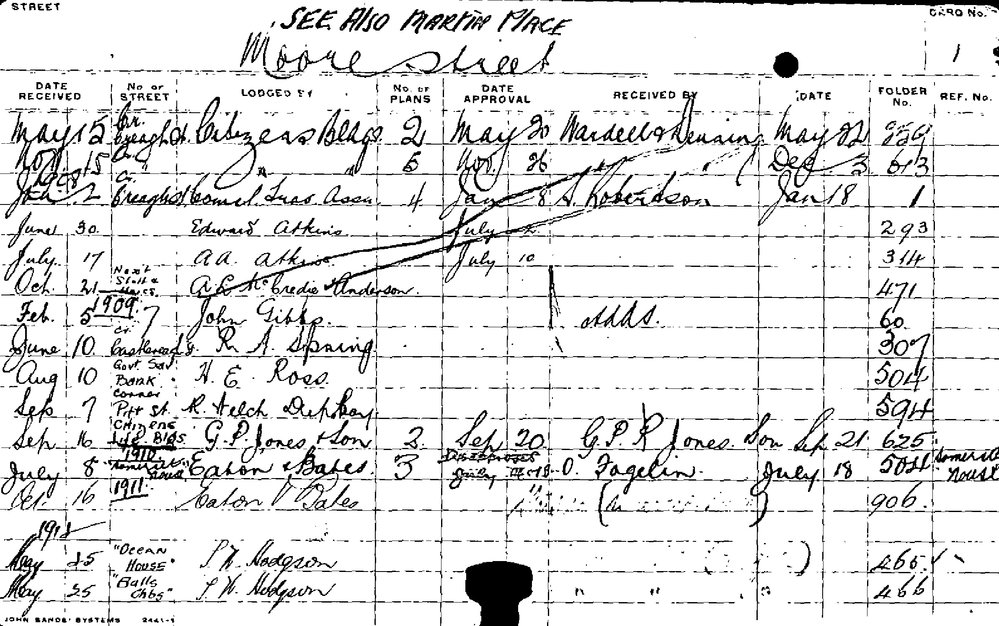 STREET
SEE Also MARTIN PLACE
CARD No.
Moore Street
1
DATE RECEIVED No OF STREET LODGED BY No. OF PLANS DATE APPROVAL RECEIVED BY DATE FOLDER No. REF. No.
May 15 Cr Creagh St Citizens Bldgs 2 May 20 Wardell & Denning May 22
Nov 15 Cr " " 5 Nov. 26 " Dec 3 513
1908
Jan 2 Cr Creagh St Comcl Trav Assn 4 Jan 8 A. Robertson Jan 18 1
June 30. Edward Atkins July 293
July. 17 A A. Atkins July 10 314
Oct. 21 Next A E McCredie & Anderson. 471
1909
Feb. 5 7 John Gibbs. Adds. 60.
June 10. cr. Castlereagh R. A. Spring. 307
Aug 10 Govt. Sav. Bank. H. E. Ross. 504
Sep 7 Corner Pitt St. R 594
Sep. 16 Citizens Life Bldgs G. P. Jones & Son 2. Sep 20. G. P R Jones. Son Sep 21 625.
1910
July 8 "Somerset House" Eaton & Bates 3 Disapproved July O. Fagelin. July 18 504 Somerset House
1911
Oct. 16 Eaton & Bates " ( ) 906.
191
May 25 "OCEAN HOUSE" S. W. Hodgson " ) 465.
May 25 "Bulls Chbs" S. W. Hodgson " " " 466
JOHN SANDS' SYSTEMS 2441-1